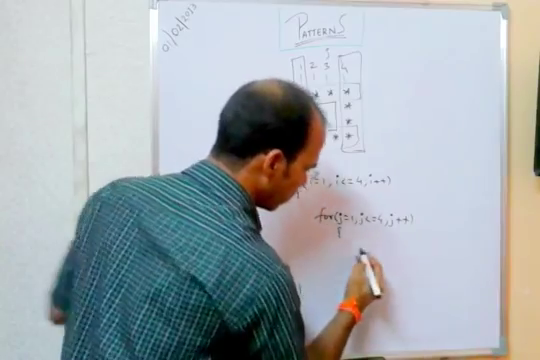 01/02/2013
PATTERNS
j
1 2 3 4
1 1
* * *
*
*
* *
(i=1, i<=4, i++)
{
for(j=1, j<=4, j++)
{